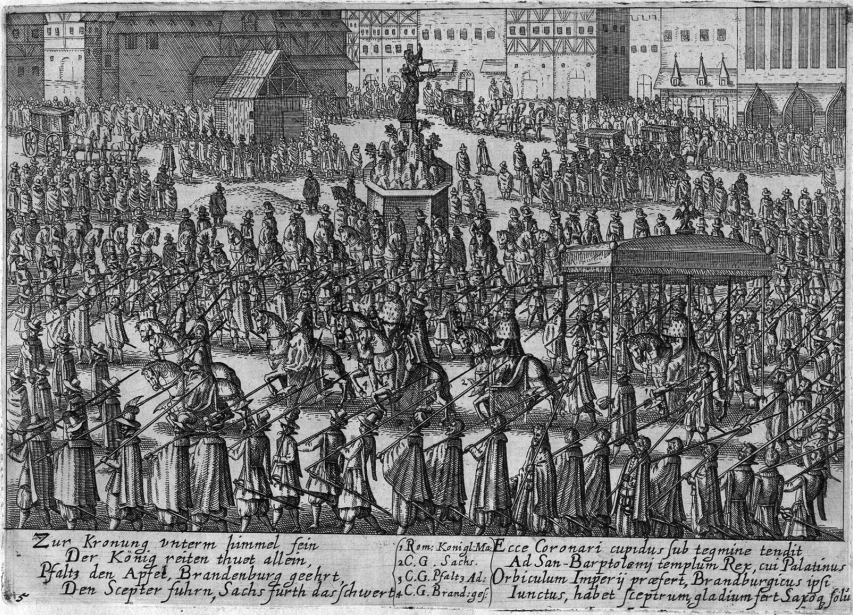 Zur Kronung vnterm himmel fein
Der König reiten thuet allein,
Pfaltz den Apfel, Brandenburg geehrt
Den Scepter fuhrn, Sachs furth das schwert
1 Rom: Konigl: Ma:
2 C. G. Sachs.
3 C. G. Pfaltz Ad:
4 C. G. Brand: ges:
Ecce Coronari cupidus sub tegmine tendit
Ad San-Barptolemj templum Rex, cui Palatinus
Orbiculum Imperij præfert, Brandburgicus ipsi
Iunctus, habet scepirum, gladium fert Saxoq solu
5